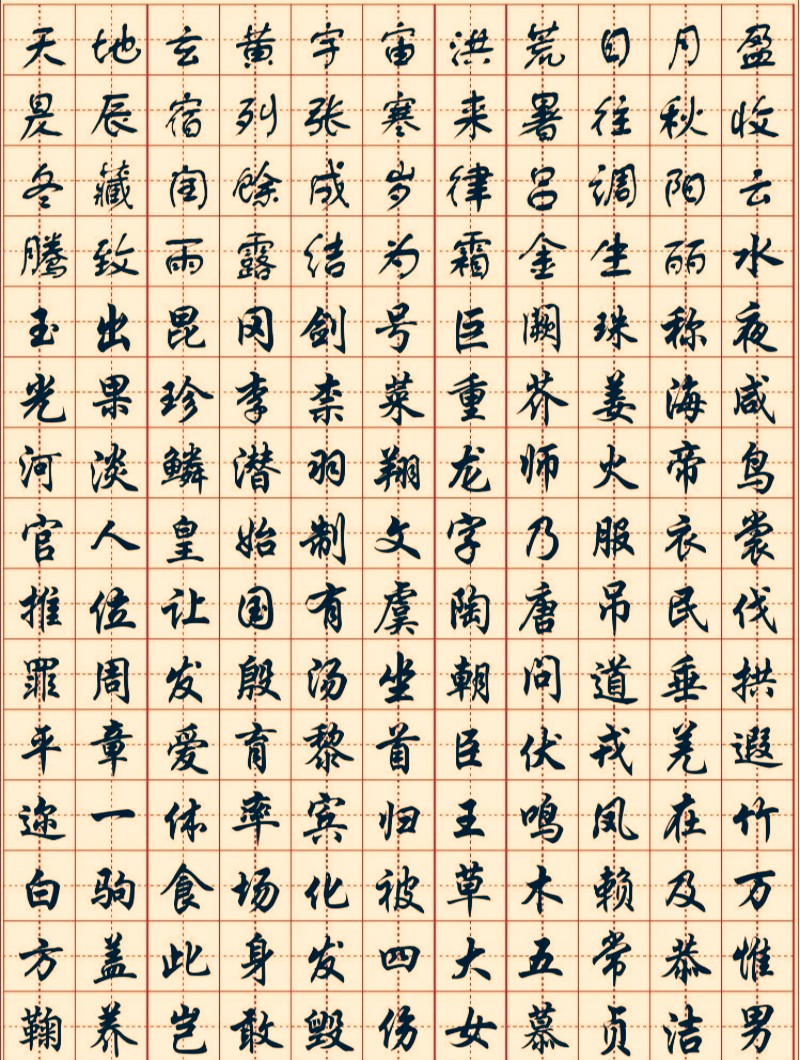 天地玄黄宇宙洪荒日月盈
昃辰宿列张寒来暑往秋收
冬藏闰馀成岁律吕调阳云
腾致雨露结为霜金生丽水
玉出昆冈剑号巨阙珠称夜
光果珍李柰菜重芥姜海咸
河淡鳞潜羽翔龙师火帝鸟
官人皇始制文字乃服衣裳
推位让国有虞陶唐吊民伐
罪周发殷汤坐朝问道垂拱
平章爱育黎首臣伏戎羌遐
迩一体率宾归王鸣凤在竹
白驹食场化被草木赖及万
方盖此身发四大五常恭惟
鞠养岂敢毁伤女慕贞洁男